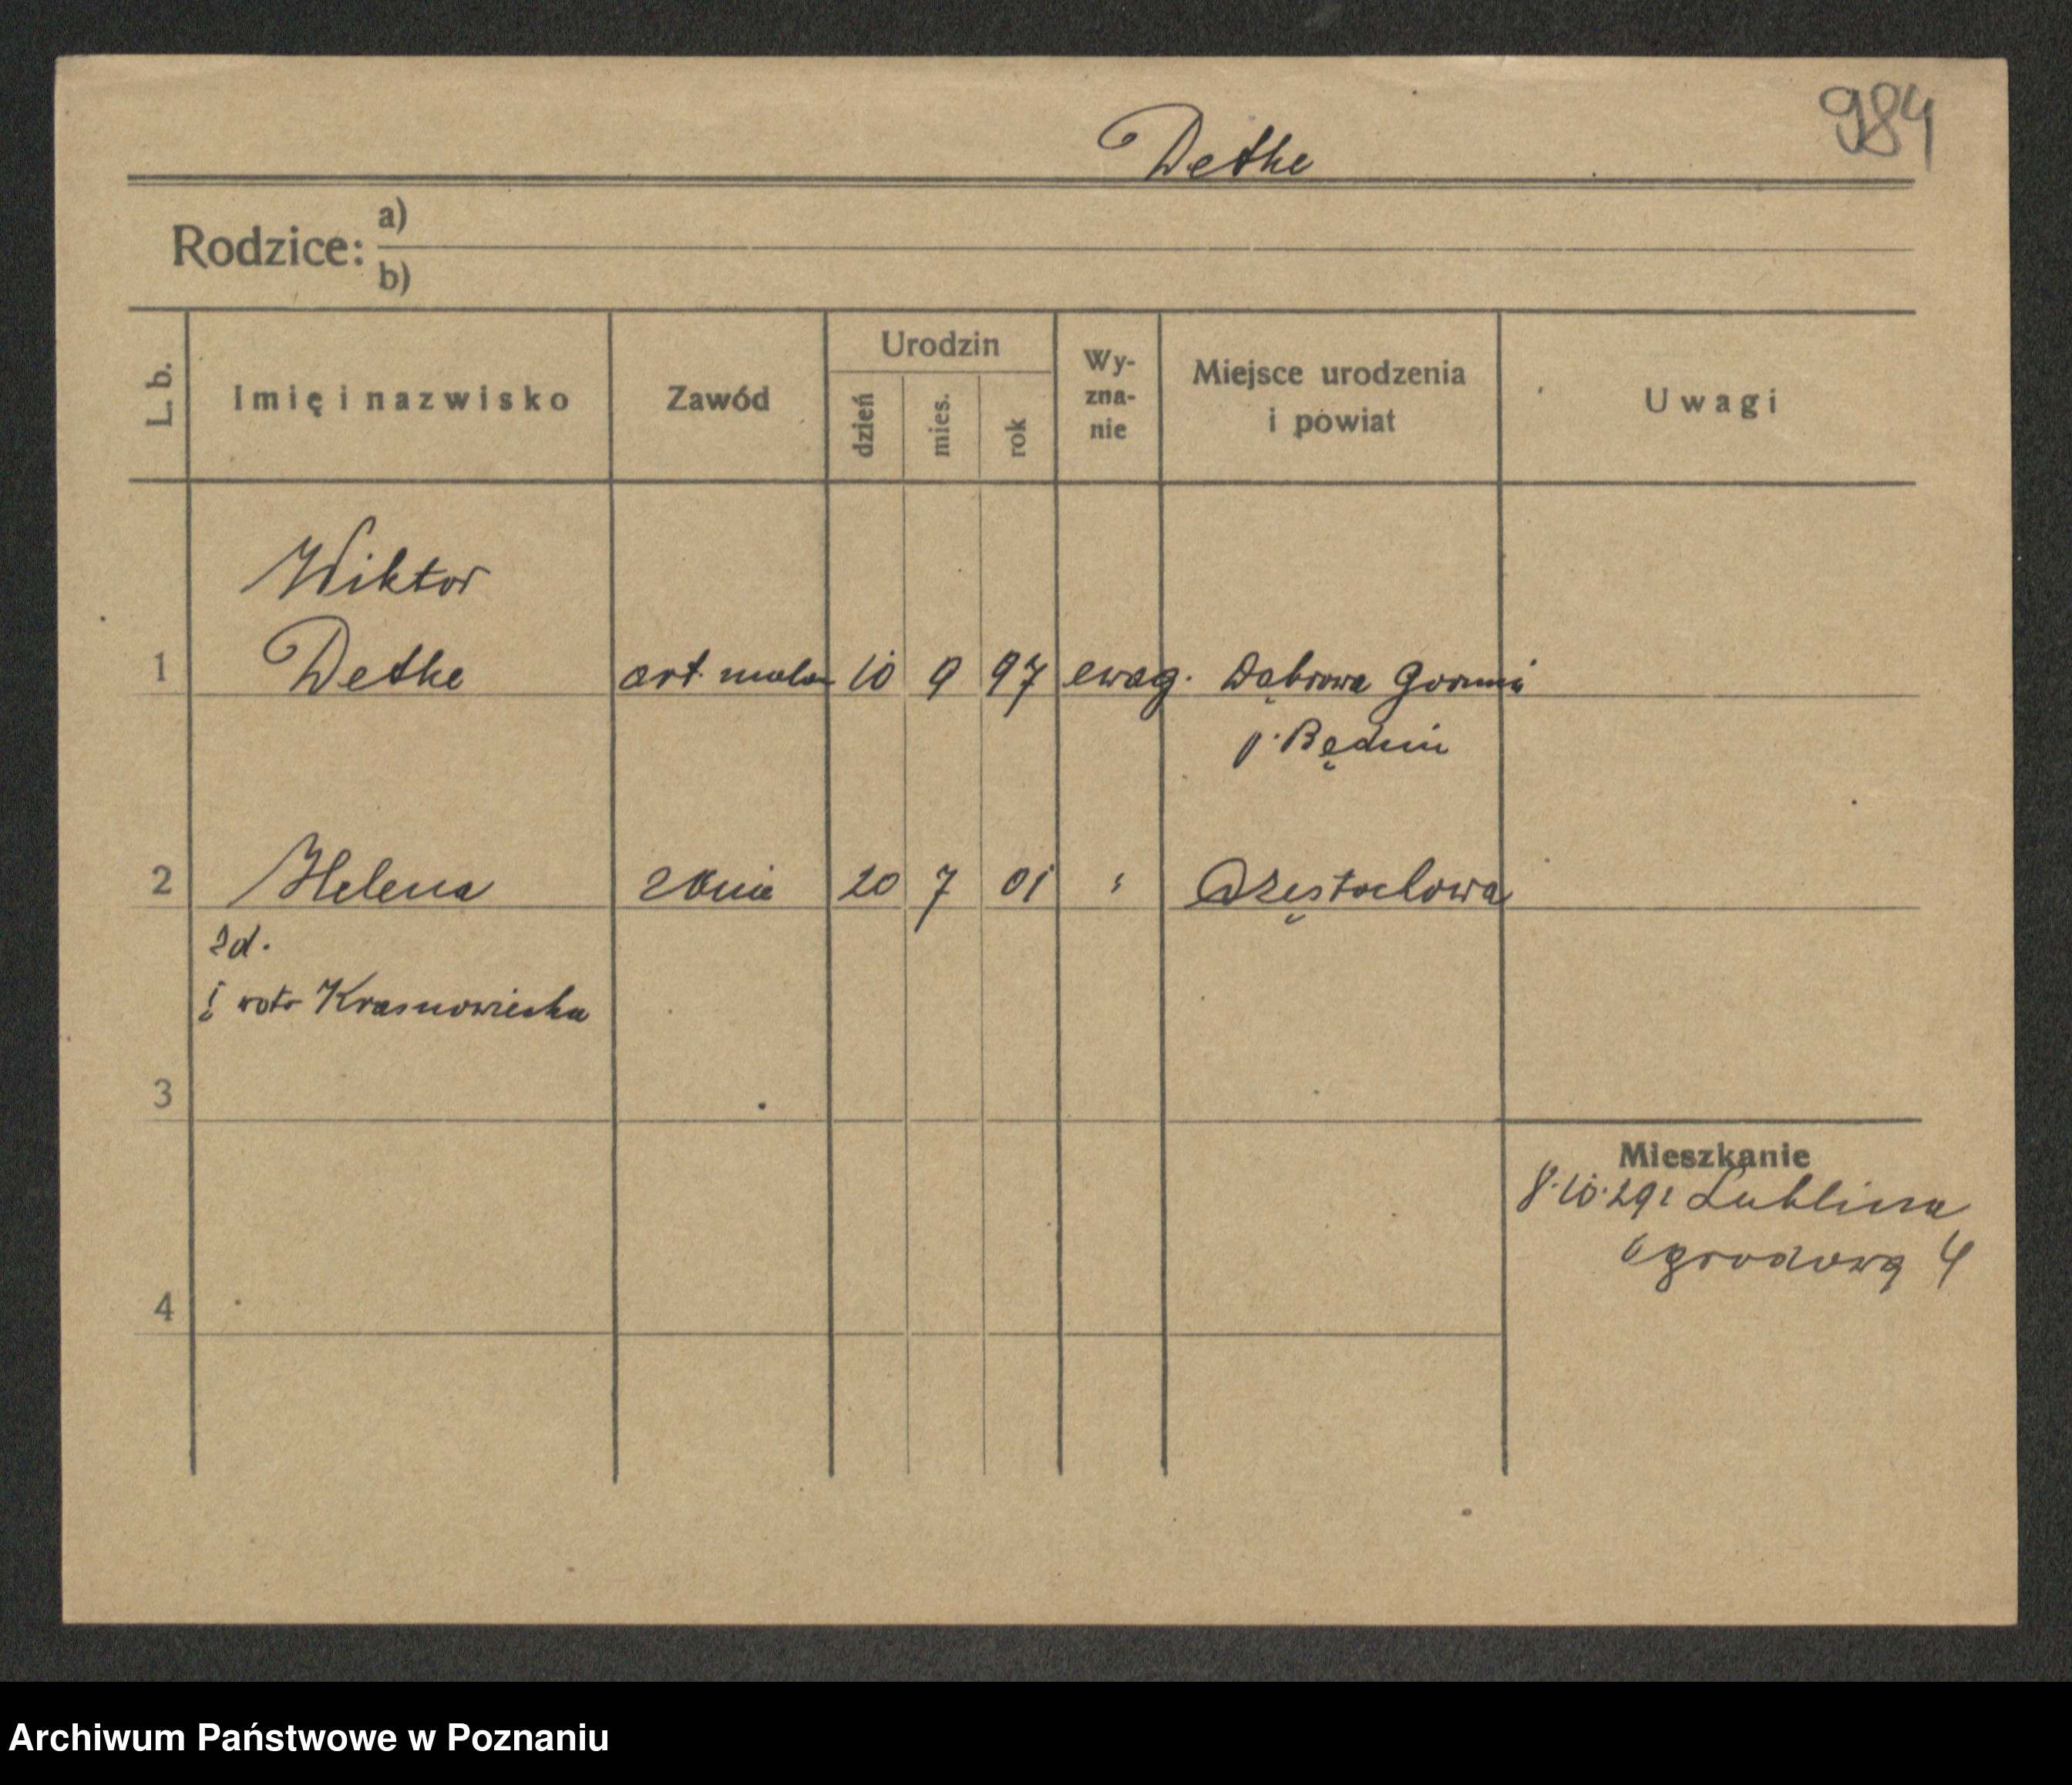 984
Detke
Rodzice: a)
b)
L. b.
Imię i nazwisko
Zawód
Urodzin
dzień
mies.
rok
Wy-
zna-
nie
Miejsce urodzenia
i powiat
Uwagi
Wiktor
1 Detke art. malarz 10 9 97 ewag. Dąbrowa Gornicz
p. Będzin
2 Helena żona 20 7 01 " Częstochowa
zd.
Krasnowiecka
3
Mieszkanie
8.10.29 z Lublina
Ogrodowa 4
4
Archiwum Państwowe w Poznaniu